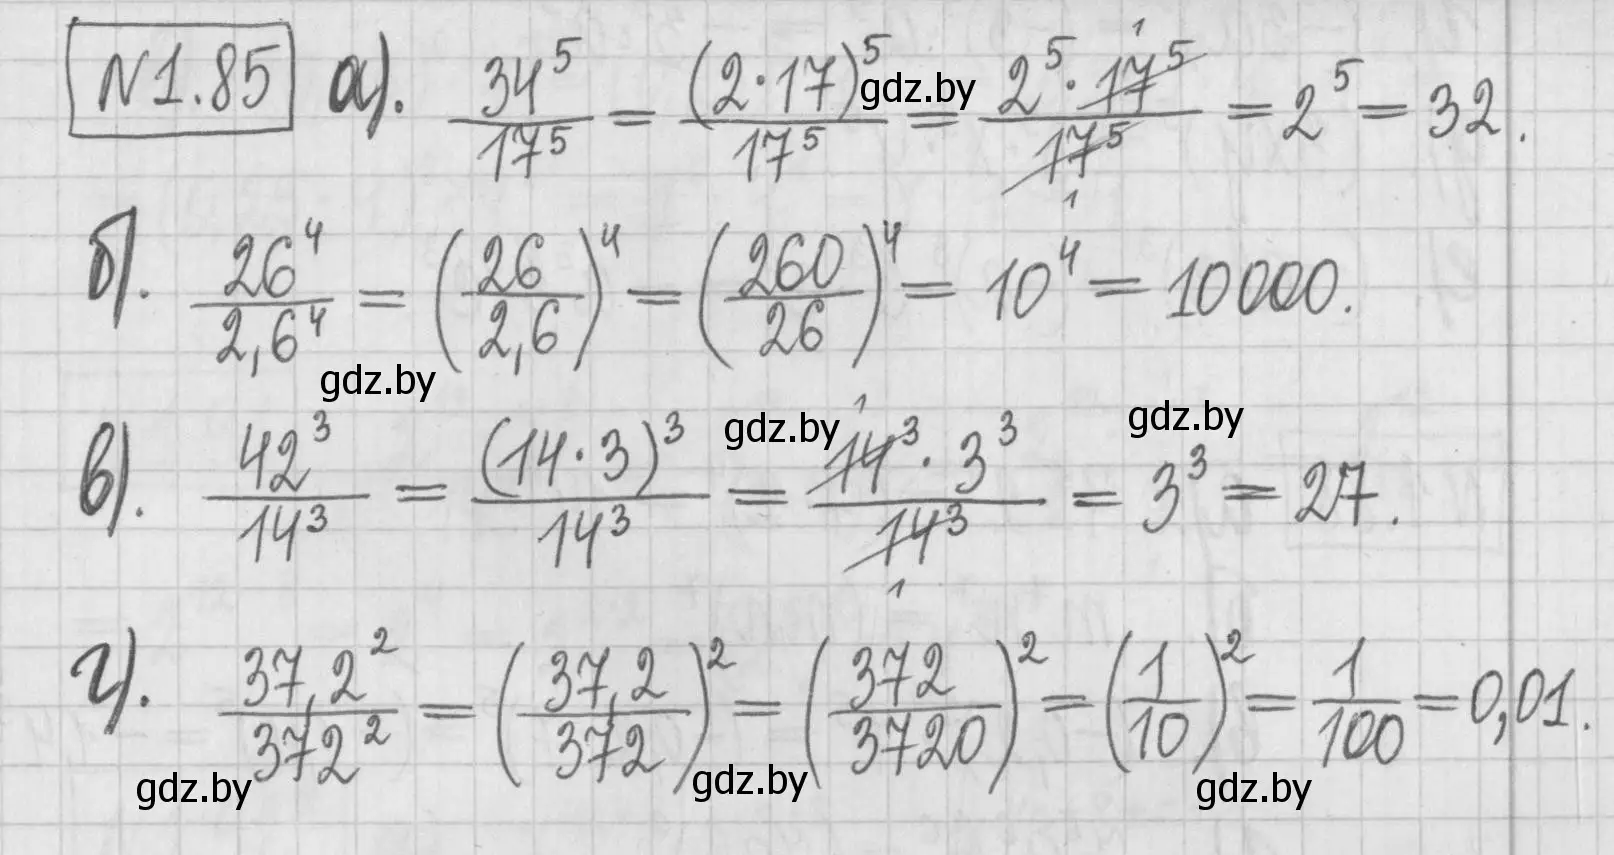 N1.85 а). 34^5/17^5 = (2·17)^5/17^5 = 2^5·17^5/17^5 = 2^5 = 32.
б). 26^4/2,6^4 = (26/2,6)^4 = (260/26)^4 = 10^4 = 10000.
в). 42^3/14^3 = (14·3)^3/14^3 = 14^3·3^3/14^3 = 3^3 = 27.
г). 37,2^2/372^2 = (37,2/372)^2 = (372/3720)^2 = (1/10)^2 = 1/100 = 0,01.
gdz.by
gdz.by
gdz.by
gdz.by
gdz.by
gdz.by
gdz.by